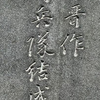 晋作
兵隊結成